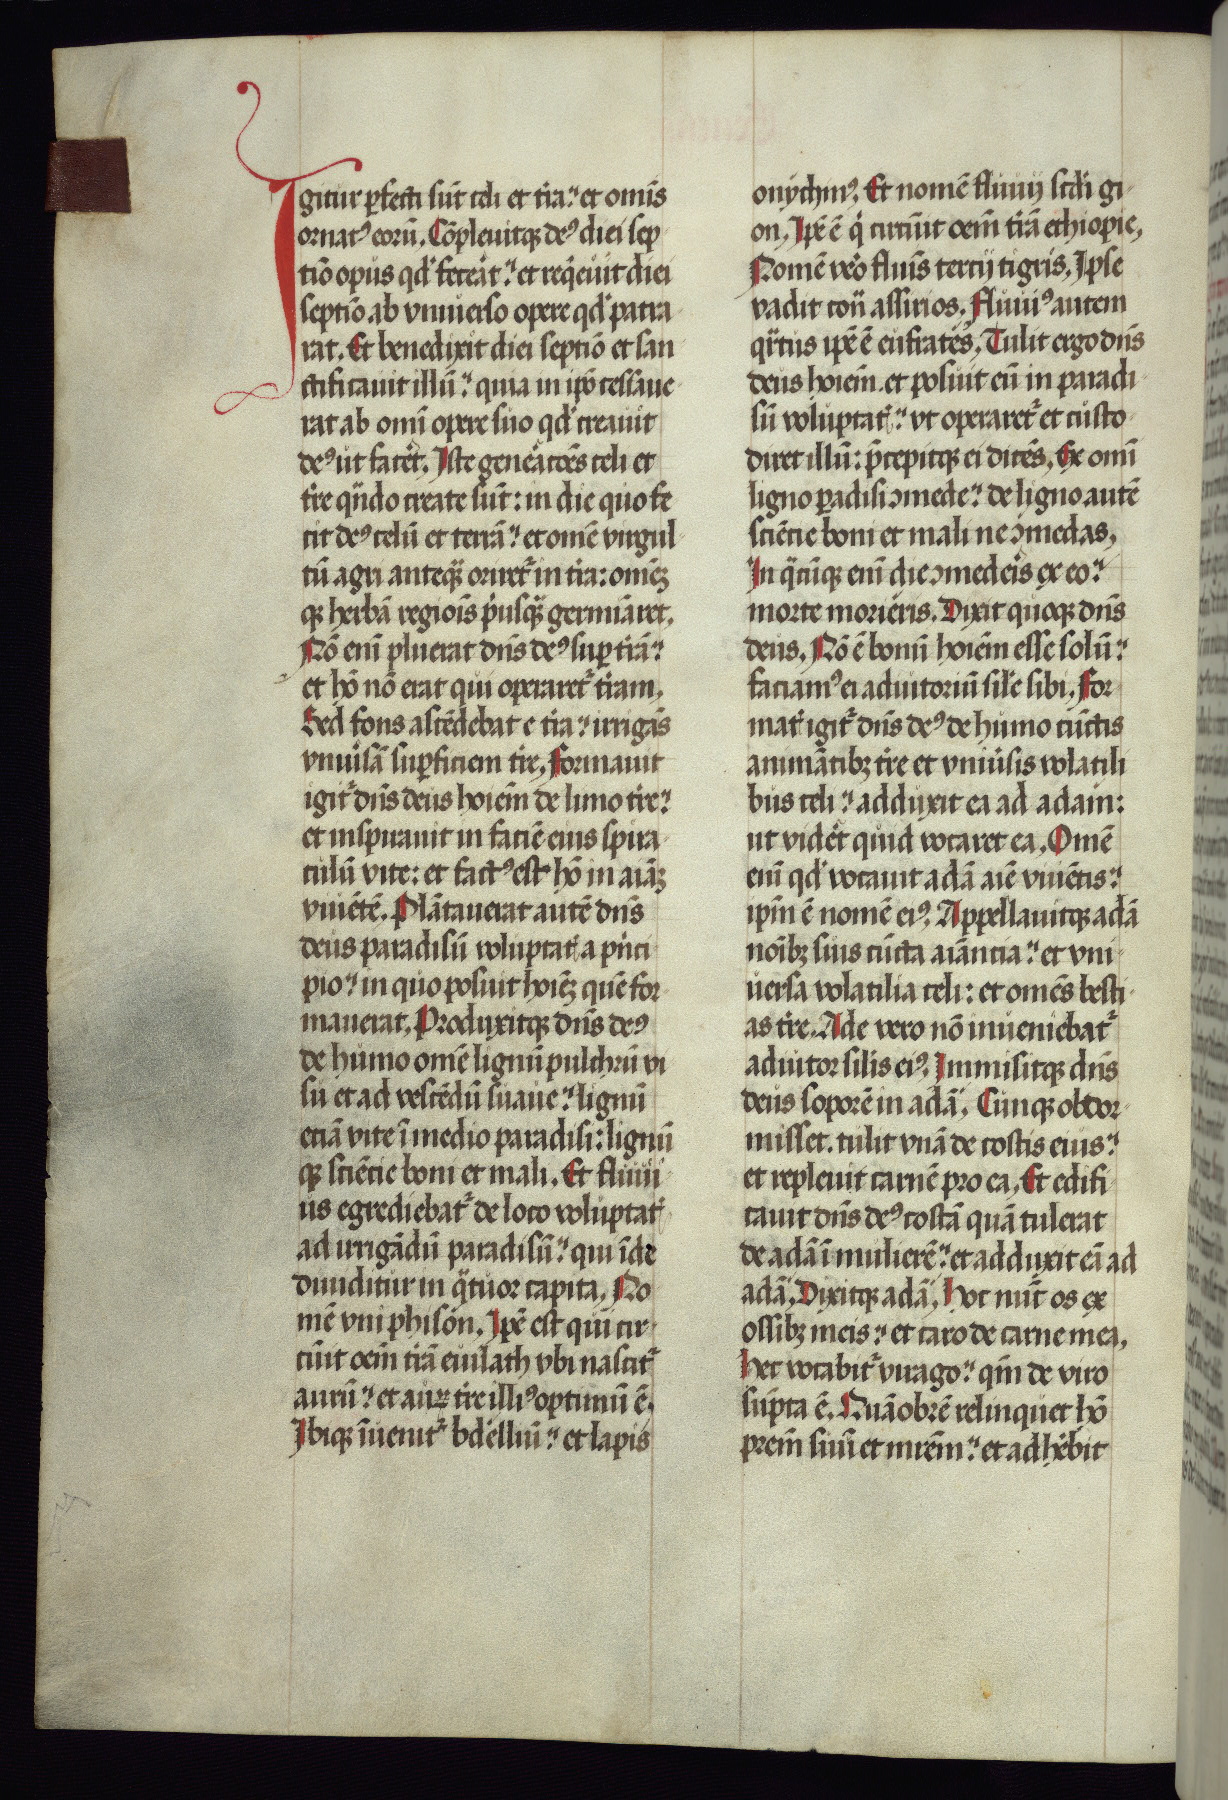 Igitur ꝑfecti sūt celi et t̄ra: et om̄is
ornatꝰ eorū. Cōpleuitqꝫ deꝰ diei sep
tīo opus qđ fecerat: et reqͥeuit diei
septīo ab vniuerso opere qđ patra
rat. Et benedixit diei septīo et san
ctificauit illū: quia in ip̄o cessaue
rat ab om̄i opere suo qđ creauit
deꝰ ut facet̄. Iste gene᷑atōes celi et
tr̄e qn̄do create sūt: in die quo fe
cit deꝰ celū et terrā: et om̄e virgul
tū agri anteqͣꝫ oriret᷑ in tr̄a: omēꝫ
qꝫ herbā regiōis pͥusqͣꝫ germīaret.
Nō eni pluerat dn̄s deꝰ suꝑ tr̄ā:
et hō nō erat qui operaret᷑ tr̄am.
Sed fons ascēdebat e tr̄a: irrigās
vniūsā suꝑficiem tr̄e. Formauit
igit᷑ dn̄s deus hoīem de limo tr̄e:
et inspirauit in faciē eius spira
culū vite: et factꝰ est hō in aīāꝫ
viuētē. Plātauerat autē dn̄s
deus paradisū voluptatꝭ a pͥnci
pio: in quo posuit hoīeꝫ quē for
mauerat. Produxitqꝫ dn̄s deꝰ
de humo om̄e lignū pulchrū vi
su et ad vescēdū suaue: lignū
eciā vite ī medio paradisi: lignū
qꝫ sciēcie boni et mali. Et fluui
us egrediebat᷑ de loco voluptatꝭ
ad irrigādū paradisū: qui īde
diuiditur in qͣtuor capita. No
mē vni phison. Ip̄e est qui cir
cūit oēm tr̄ā euilath vbi nascit᷑
aurū: et auꝝ tr̄e illiꝰ optimū ē.
Ibiqꝫ īuenit᷑ bdelliū: et lapis
onychinꝰ. Et nomē fluuij scd̄i gi
on. Ip̄e ē qͥ circūit oēm tr̄ā ethiopie.
Nomē vero fluīs tercij tigris. Ipse
vadit con̄ assirios. Fluuiꝰ autem
qͣrtus ip̄e ē eufrates. Tulit ergo dn̄s
deus hoīem. et posuit eū in paradi
sū voluptatꝭ: vt operaret᷑ et custo
diret illū: p̄cepitqꝫ ei dicēs. Ex om̄i
ligno ꝑadisi ꝯmede: de ligno autē
sciēcie boni et mali ne ꝯmedas.
In qͣcūqꝫ eni die ꝯmederis ex eo:
morte morieris. Dixit quoqꝫ dn̄s
deus. Nō ē bonū hoīem esse solū:
faciamꝰ ei adiutoriū sil̄e sibi. For
matꝭ igit᷑ dn̄s deꝰ de humo cūctis
animātibꝫ tr̄e et vniūsis volatili
bus celi: adduxit ea ad adam:
ut videt̄ quid vocaret ea. Om̄e
eni qđ vocauit adā aīe viuētis:
ip̄m ē nomē eiꝰ. Appellauitqꝫ adā
noībꝫ suis cūcta aīāncia: et vni
uersa volatilia celi: et om̄es besti
as tr̄e. Ade vero nō inueniebat᷑
adiutor sil̄is eiꝰ. Immisitqꝫ dn̄s
deus soporē in adā. Cūnqꝫ obdor
misset. tulit vnā de costis eius:
et repleuit carnē pro ea. Et edifi
cauit dn̄s deꝰ costā quā tulerat
de adā ī mulierē: et adduxit eā ad
adā. Dixitqꝫ adā. Hoc nūc os ex
ossibꝫ meis: et caro de carne mea.
Hec vocabit᷑ virago: qm̄ de viro
sūpta ē. Quāobrē relinquet hō
prēm suū et mr̄em: et adhēbit